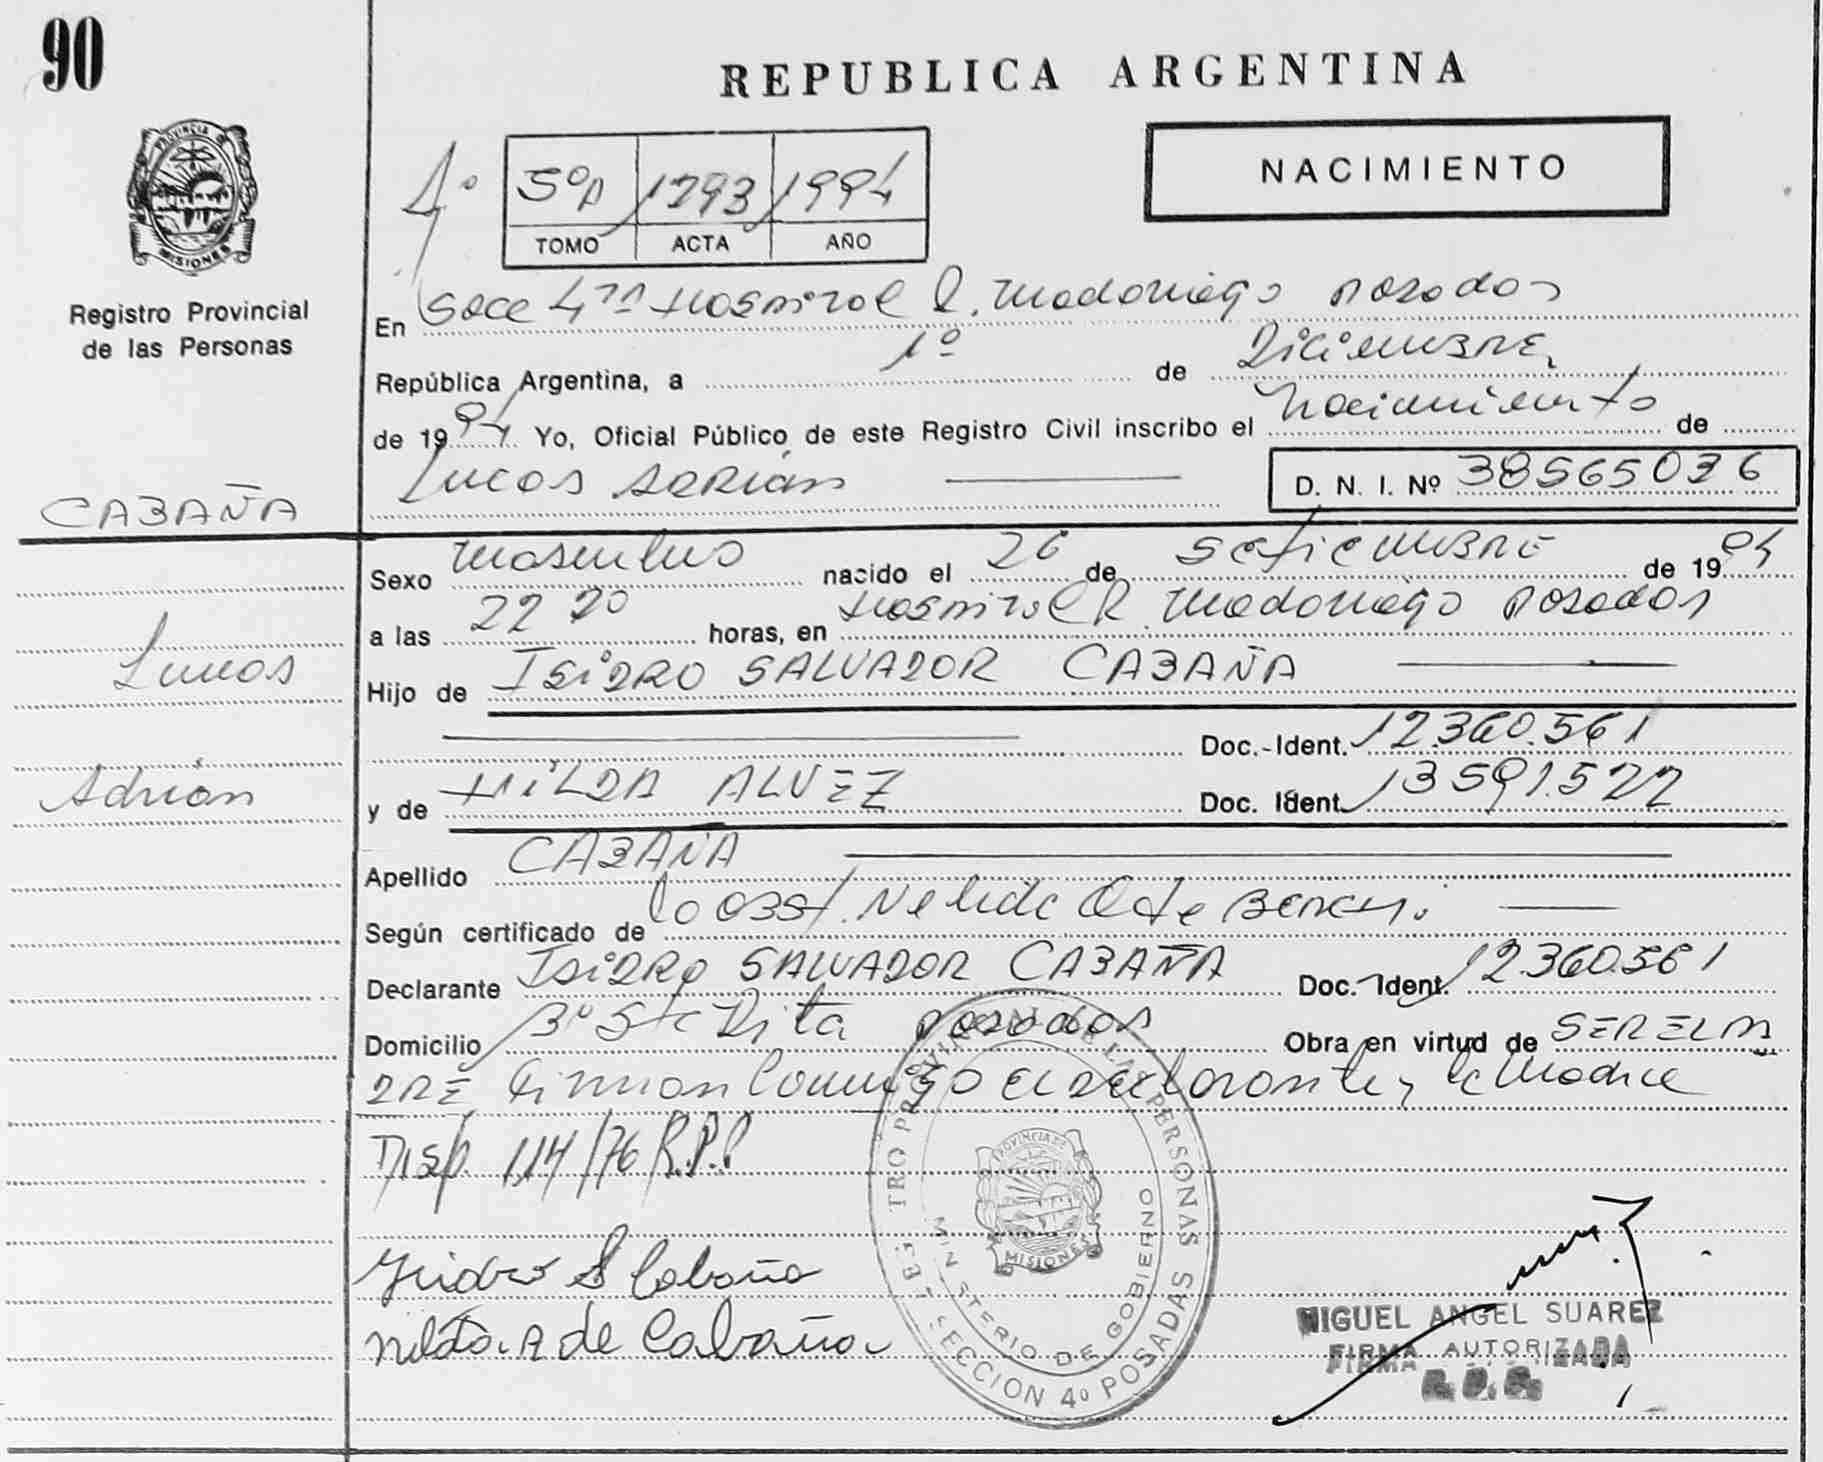 90
REPUBLICA ARGENTINA
PROVINCIA DE
MISIONES
Registro Provincial
de las Personas
NACIMIENTO
1º 5ºA 1293 1994
TOMO ACTA AÑO
En Secc 4ta Hospital R. Madariaga Posadas
República Argentina, a 1º de Diciembre
de 1994 Yo, Oficial Público de este Registro Civil inscribo el Nacimiento de
Lucas Adrián D. N. I. Nº 38565036
CABAÑA
Lucas
Adrián
Sexo Masculino nacido el 26 de Setiembre de 1994
a las 22 20 horas, en Hospital R. Madariaga Posadas
Hijo de ISIDRO SALVADOR CABAÑA
Doc.-Ident. 12.360.561
y de HILDA ALVEZ Doc. Ident. 13591.522
Apellido CABAÑA
Según certificado de la Obst. Nelida
Declarante ISIDRO SALVADOR CABAÑA Doc.-Ident. 12360561
Domicilio Bº Sta Rita Posadas Obra en virtud de SER EL PA
DRE Firman Conmigo el declarante y la Madre
Disp. 114/76 R.P.P
Isidro S Cabaña
A de Cabaña
TRO PROVINCIAL DE LAS PERSONAS
MINISTERIO DE GOBIERNO
PROVINCIA DE
MISIONES
SECCION 4º POSADAS
MIGUEL ANGEL SUAREZ
FIRMA AUTORIZADA